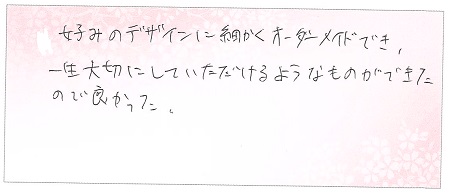 好みのデザインに細かくオーダーメイドでき、
一生大切にしていただけるようなものができた
ので良かった。